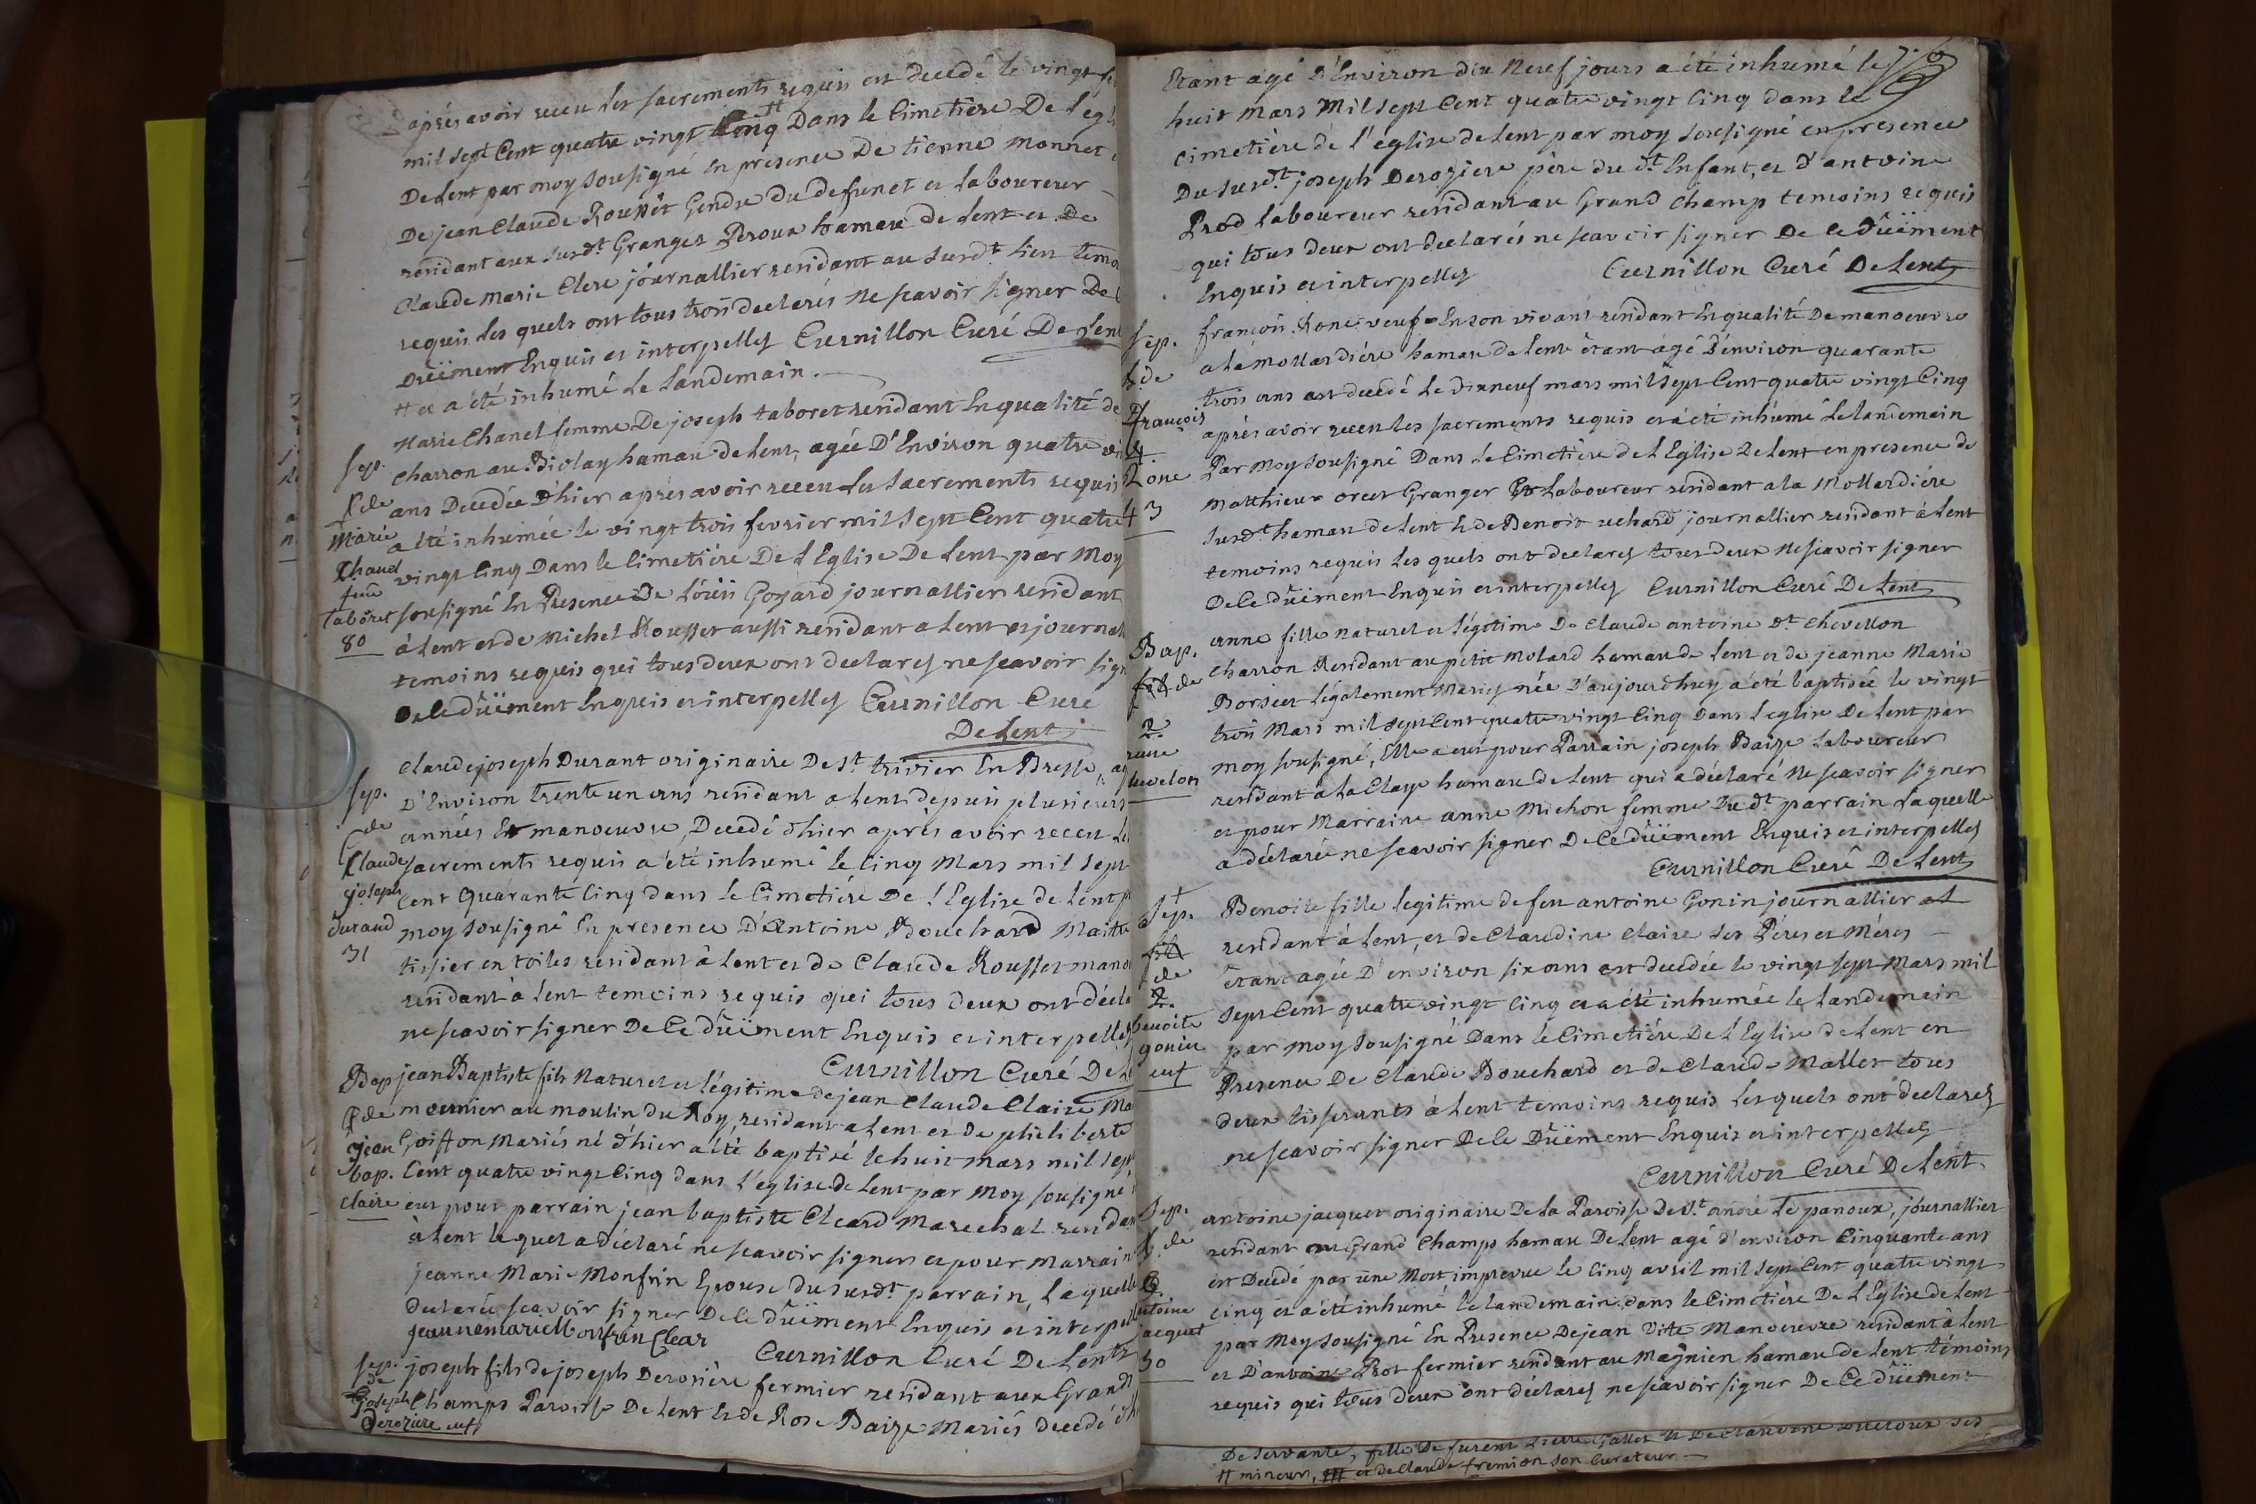 après avoir receu les sacrements requis est decedé le vingt
mil sept Cent quatre vingt Cinq # Dans le Cimetière De l'egl
De Lent par moy sousigné En presence De tienne monnet
De jean Claude Rousset Gendre du defunct et laboureur
residant aux susdt Granges Peroux hamau de Lent et De
Claude Marie Clerc journallier residant au susdt lieu temo
requis les quels ont tous trois declarés ne scavoir signer De
Düëment Enquis et interpellez Curnillon Curé De Lent
# et a été inhumé le landemain.
Sep.
de
Marie
Chanel
feme
taboret
80
Marie Chanel femme De joseph taboret residant En qualité de
charron au Biolay hamau de Lent, agée D'Environ quatre vin
ans Decedée d'hier après avoir receu les sacrements requis
a été inhumée le vingt trois fevrier mil sept Cent quatre
vingt Cinq Dans le Cimetière De l'Eglise De Lent par Moy
sousigné En Presence De Loüis Goyard journallier residant
à Lent et de Michel Rousset aussi residant a Lent et journal
temoins requis qui tous deux ont declarez ne scavoir sign
De Ce düëment Enquis et interpellez Curnillon Curé
De Lent
Sep.
de
Claude
joseph
durand
31
Claude joseph Durant originaire De St trivier En Bresse, ag
D'Environ trente un ans residant a Lent depuis plusieurs
années En manoeuvre, Decedé d'hier après avoir receu le
sacrements requis a été inhumé le Cinq Mars mil sept
Cent Quarante Cinq dans le Cimetière De l'Eglise de Lent p
moy sousigné En presence D'Antoine Bouchard Maitre
tissier en toiles residant à Lent et de Claude Rousset mano
residant à Lent temoins requis qui tous deux ont décla
ne scavoir signer De Ce düëment Enquis et interpellez
Curnillon Curé De Le
Bap
de
jean
bap.
claire
jean Baptiste fils Naturel et légitime de jean Claude Claire Ma
meunier au moulin du Roy, residant a Lent et De philiberte
Goiffon Mariés né d'hier a été baptisé le huit mars mil sept
Cent quatre vingt Cinq dans l'église de Lent par Moy sousigné
eut pour parrain jean baptiste Cleard Marechal residan
à Lent lequel a déclaré ne scavoir signer et pour Marrain
jeanne Marie Monfrin Epouse du susdt parrain, laquelle
declarée scavoir signer De Ce düëment Enquis et interpell
jeanne marie Monfrin Clear Curnillon Curé De Lent
Sep.
de
joseph
Deroziere enf
joseph fils de joseph Derosière fermier residant aux Grand
Champs Paroisse De Lent et de Rose Baize Mariés decedé d'h
Etant agé D'Environ dix Neuf jours a été inhumé le
huit Mars Mil sept Cent quatre vingt Cinq dans le
cimetière de l'église de Lent par moy sousigné en presence
Du susdt joseph Deroziere père du dt Enfant, et d'antoine
Prod laboureur residant au Grand champ temoins requis
qui tous deux ont declarés ne scavoir signer De Ce düëment
Enquis et interpellez Curnillon Curé De Lent
Sep.
de
françois
Rone
43
françois Rone veuf En son vivant residant En qualité De manoeuvre
a la mollardière hamau de Lent étant agé D'environ quarante
trois ans est decedé le dix neuf mars mil sept Cent quatre vingt Cinq
après avoir receu les sacrements requis et a été inhumé le landemain
Par Moy sousigné Dans le Cimetière de l'Eglise De Lent en presence de
Matthieux orcet Granger et Laboureur residant a la Mollardière
susdt hamau de Lent Et de Benoit uchard journallier residant à Lent
temoins requis les quels ont declarez tous deux ne scavoir signer
De Ce düëment Enquis et interpellez Curnillon Curé De Lent
Bap.
de
chevelon
anne fille naturel et légitime De Claude antoine dt Chevellon
Charron Residant au petit Molard hamau de Lent et de jeanne Marie
Borsiet légalement Mariez née D'aujourd'huy a été baptisée le vingt
trois Mars mil sept Cent quatre vingt Cinq Dans l'eglise De Lent par
moy sousigné, Elle a eu pour Parrain joseph Baize laboureur
residant a la Claye hamau de Lent qui a déclaré Ne scavoir signer
et pour Marraine anne Michon femme Du dt parrain laquelle
a déclarée ne scavoir signer De Ce düëment Enquis et interpellez
Curnillon Curé De Lent
Sep.
de
benoite
gonin
enf
Benoite fille legitime de feu antoine Gonin journallier
residant à Lent, et de Claudine Claire ses Péres et Méres
étant agée D'environ six ans est decedée le vingt sept Mars mil
sept Cent quatre vingt Cinq et a été inhumée le landemain
par Moy sousigné Dans le Cimetière De l'Eglise de Lent en
Presence De Claude Bouchard et de Claude Mallet tous
deux tisserants à Lent temoins requis les quels ont declarez
ne scavoir signer De Ce Düëment Enquis et interpellez
Curnillon Curé De Lent.
Sep.
de
antoine
jacquet
50
antoine jacquet originaire De la Paroisse de St andré le panoux, journallier
residant au Grand Champs hamau De Lent agé d'environ Cinquante ans
est Decedé par une Mort imprevue le Cinq avril mil sept Cent quatre vingt
cinq et a été inhumé le landemain dans le Cimetière De l'Eglise de Lent
par Moy sousigné En Presence De jean Vite Manoeuvre residant à Lent
et D'antoine Prot fermier residant au Maÿnien hamau de Lent témoins
requis qui tous deux ont déclarez ne scavoir signer De Ce düëment
De servante, fille De furent Pierre Gallet Et De Claudine ses
# mineur, et de Claude fremion son Curateur